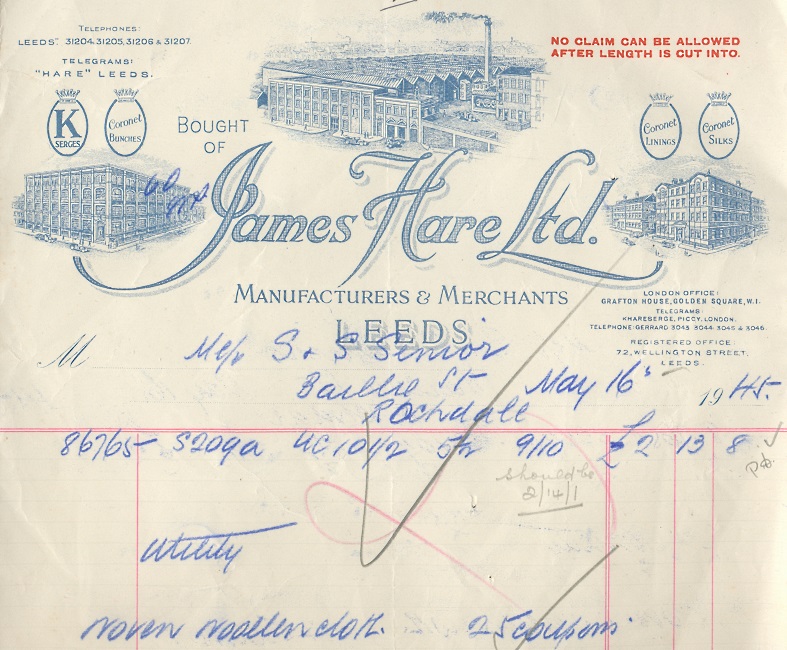 TELEPHONES:
LEEDS: 31204, 31205, 31206 & 31207.
TELEGRAMS:
"HARE" LEEDS.
NO CLAIM CAN BE ALLOWED
AFTER LENGTH IS CUT INTO.
K
SERGES
Coronet
BUNCHES
Coronet
LININGS
Coronet
SILKS
BOUGHT
OF
60
James Hare Ltd.
MANUFACTURERS & MERCHANTS
LEEDS
LONDON OFFICE:
GRAFTON HOUSE, GOLDEN SQUARE, W.1.
TELEGRAMS:
KHARESERGE, PICCY, LONDON.
TELEPHONE: GERRARD 3043, 3044, 3045 & 3046.
REGISTERED OFFICE:
72, WELLINGTON STREET,
LEEDS.
M S & S Senior
Baillie St May 16 1945.
Rochdale
86765 5209a UC 10 1/2 9/10 £2 13 8
should be
2/14/1
Utility
Woven Woollen cloth. 25 coupons.